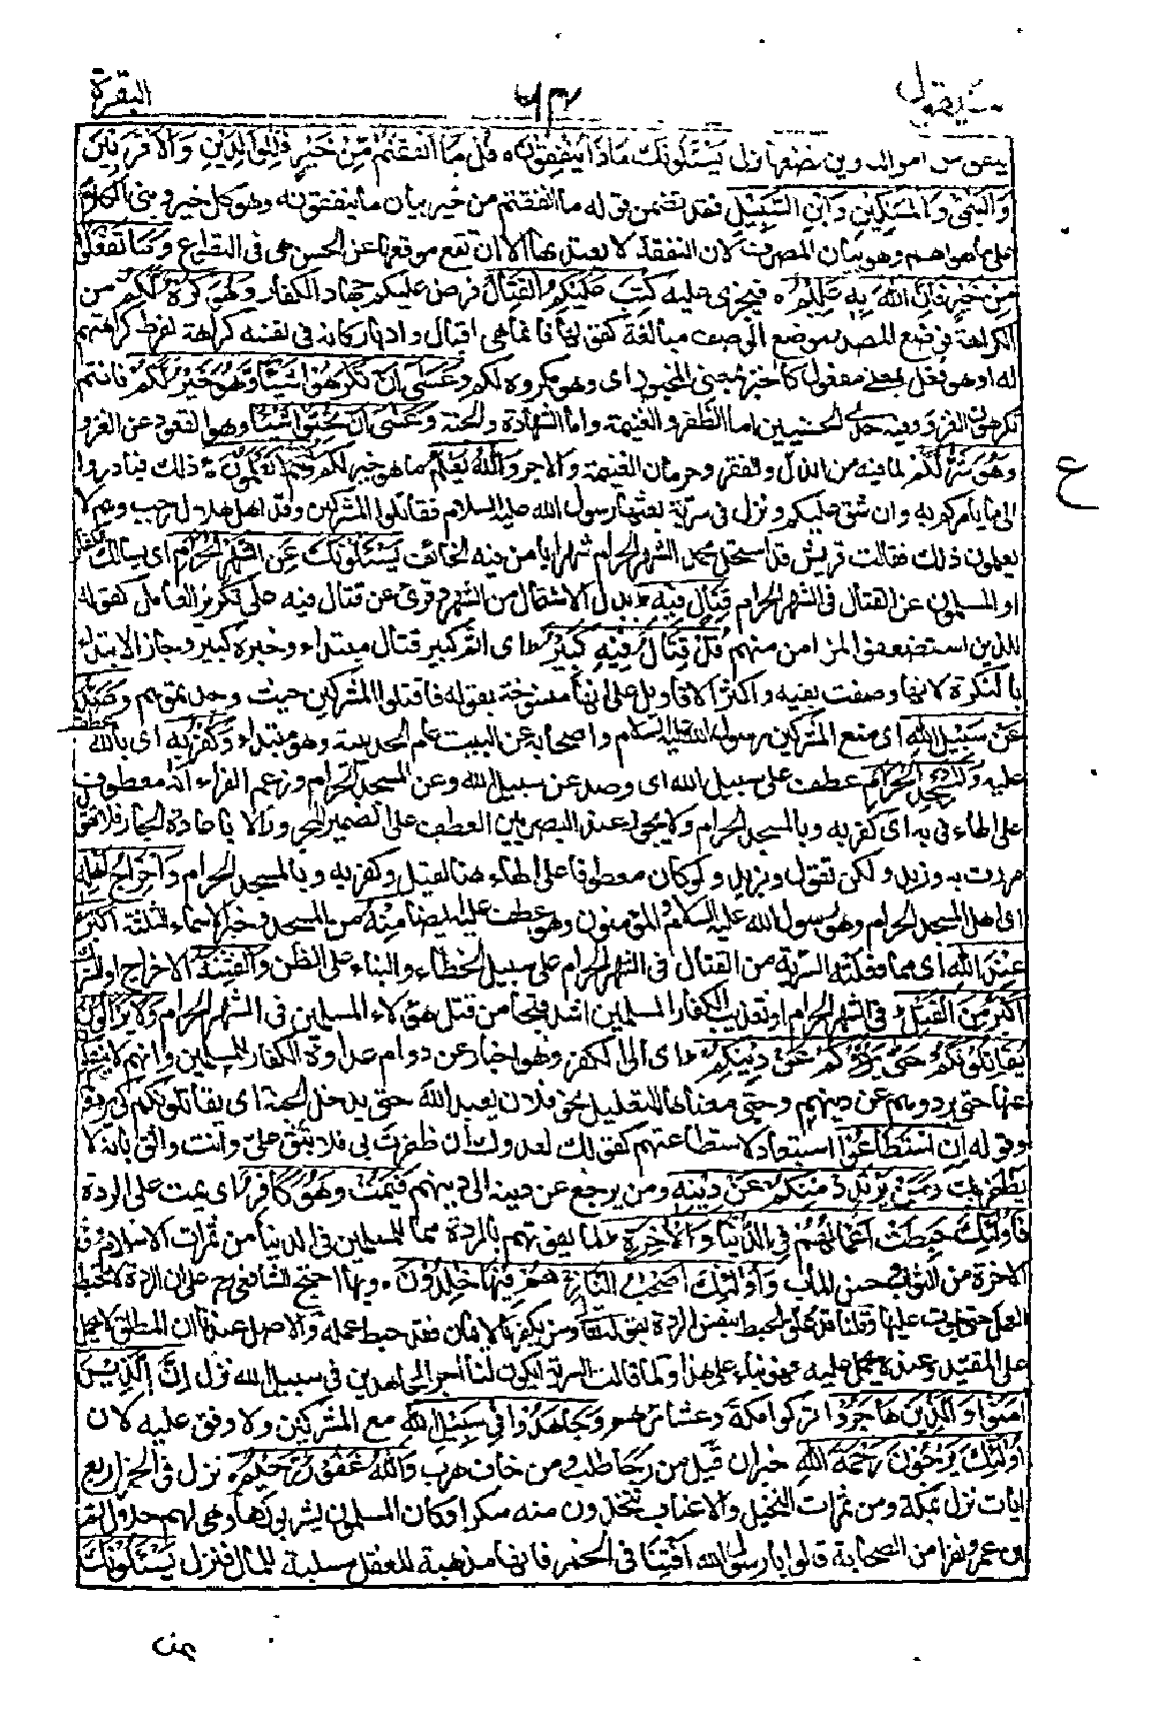 سيقول
٦٣
البقرة
من اموالنا واين نضعها نزل يَسْـَٔلُونَكَ مَاذَا يُنْفِقُوْنَ ۥ قُلْ مَا اَنْفَقْتُمْ مِّنْ خَيْرٍ فَلِلْوَالِدَيْنِ وَالْاَقْرَبِيْنَ
وَالْيَتٰمٰى وَالْمَسٰكِيْنِ وَابْنِ السَّبِيْلِ فقد تضمن قوله ما انفقتم من خير بيان ما ينفقونه وهو كل خير وبنى الكلام
على ما هو اهم وهو بيان المصرف لان النفقة لا يعتد بها الا ان تقع موقعها عن الحسن هى فى التطوع وَمَا تَفْعَلُوْا
مِنْ خَيْرٍ فَاِنَّ اللّٰهَ بِهٖ عَلِيْمٌ ۥ فيجزى عليه كُتِبَ عَلَيْكُمُ الْقِتَالُ فرض عليكم جهاد الكفار وَهُوَ كُرْهٌ لَّكُمْ من
الكراهة فوضع المصدر موضع الوصف مبالغة كقولها فانما هى اقبال وادبار كانه فى نفسه كراهة لفرط كراهتهم
له او هو فعل بمعنى مفعول كالخبز بمعنى المخبوز اى وهو مكروه لكم وَعَسٰٓى اَنْ تَكْرَهُوْا شَيْـًٔا وَّهُوَ خَيْرٌ لَّكُمْ فانتم
تكرهون الغزو وفيه احدى الحسنيين اما الظفر والغنيمة واما الشهادة والجنة وَعَسٰٓى اَنْ تُحِبُّوْا شَيْـًٔا وهو القعود عن الغزو
وَّهُوَ شَرٌّ لَّكُمْ لما فيه من الذل والفقر وحرمان الغنيمة والاجر وَاللّٰهُ يَعْلَمُ ما هو خير لكم وَاَنْتُمْ لَا تَعْلَمُوْنَ ۥ ذلك فبادروا
الى ما يامركم به وان شق عليكم ونزل فى سرية بعثها رسول الله عليه السلام فقاتلوا المشركين وقد اهل هلال رجب وهم لا
يعلمون ذلك فقالت قريش قد استحل محمد الشهر الحرام شهرا يأمن فيه الخائف يَسْـَٔلُوْنَكَ عَنِ الشَّهْرِ الْحَرَامِ اى يسالك الكفار
او المسلمون عن القتال فى الشهر الحرام قِتَالٍ فِيْهِ ۥ بدل الاشتمال من الشهر وقرئ عن قتال فيه على تكرير العامل كقوله
للذين استضعفوا لمن امن منهم قُلْ قِتَالٌ فِيْهِ كَبِيْرٌ ۥ اى اثم كبير قتال مبتداء وخبره كبير وجاز الابتداء
بالنكرة لانها وصفت بفيه واكثر الاقاويل على انها منسوخة بقوله فاقتلوا المشركين حيث وجدتموهم وَصَدٌّ
عَنْ سَبِيْلِ اللّٰهِ اى منع المشركين رسول الله عليه السلام واصحابه عن البيت عام الحديبية وهو مبتداء وَكُفْرٌۢ بِهٖ اى بالله عطف
عليه وَالْمَسْجِدِ الْحَرَامِ عطف على سبيل الله اى وصد عن سبيل الله وعن المسجد الحرام وزعم الفراء انه معطوف
على الهاء فى به اى كفر به وبالمسجد الحرام ولا يجوز عند البصريين العطف على الضمير المجرور الا باعادة الجار فلا تقول
مررت به وزيد ولكن تقول وبزيد ولو كان معطوفا على الهاء هنا لقيل وكفر به وبالمسجد الحرام وَاِخْرَاجُ اَهْلِهٖ
اى اهل المسجد الحرام وهو رسول الله عليه السلام والمؤمنون وهو عطف عليه ايضا مِنْهُ من المسجد وخبر الاسماء الثلثة اَكْبَرُ
عِنْدَ اللّٰهِ اى مما فعلته السرية من القتال فى الشهر الحرام على سبيل الخطاء والبناء على الظن وَالْفِتْنَةُ الاخراج او الشرك
اَكْبَرُ مِنَ الْقَتْلِ فى الشهر الحرام او تعذيب الكفار المسلمين اشد قبحا من قتل هؤلاء المسلمين فى الشهر الحرام وَلَا يَزَالُوْنَ
يُقَاتِلُوْنَكُمْ حَتّٰى يَرُدُّوْكُمْ عَنْ دِيْنِكُمْ ۥ اى الى الكفر وهو اخبار عن دوام عداوة الكفار للمسلمين وانهم لا ينفكون
عنها حتى يردوهم عن دينهم وحتى معناها التعليل نحو فلان يعبد الله حتى يدخل الجنة اى يقاتلونكم كى يردوكم
وقوله اِنِ اسْتَطَاعُوْا استبعاد لاستطاعتهم كقولك لعدوك ان ظفرت بى فلا تبق على وانت واثق بانه لا
يظفر بك وَمَنْ يَّرْتَدِدْ مِنْكُمْ عَنْ دِيْنِهٖ ومن يرجع عن دينه الى دينهم فَيَمُتْ وَهُوَ كَافِرٌ اى يمت على الردة
فَاُولٰٓئِكَ حَبِطَتْ اَعْمَالُهُمْ فِى الدُّنْيَا وَالْاٰخِرَةِ ۥ لما يفوتهم بالردة مما للمسلمين فى الدنيا من ثمرات الاسلام وفى
الاخرة من الثواب وحسن المآب وَاُولٰٓئِكَ اَصْحٰبُ النَّارِ هُمْ فِيْهَا خٰلِدُوْنَ ۥ وبها احتج الشافعى رح على ان الردة لا تحبط
العمل حتى يموت عليها وقلنا قد علق الحبط بنفس الردة بقوله تعالى ومن يكفر بالايمان فقد حبط عمله والاصل عندنا ان المطلق لا يحمل
على المقيد وعنده يحمل عليه فهو بناء على هذا ولما قالت السرية ايكون لنا اجر المجاهدين فى سبيل الله نزل اِنَّ الَّذِيْنَ
اٰمَنُوْا وَالَّذِيْنَ هَاجَرُوْا تركوا مكة وعشائرهم وَجَاهَدُوْا فِىْ سَبِيْلِ اللّٰهِ مع المشركين ولا وقف عليه لان
اُولٰٓئِكَ يَرْجُوْنَ رَحْمَةَ اللّٰهِ خبر ان قيل من رجا طلب ومن خاف هرب وَاللّٰهُ غَفُوْرٌ رَّحِيْمٌ ۥ نزل فى الخمر اربع
ايات نزل بمكة ومن ثمرات النخيل والاعناب تتخذون منه سكرا وكان المسلمون يشربونها وهى لهم حلال ثم
ان عمر ونفرا من الصحابة قالوا يا رسول الله افتنا فى الخمر فانها مذهبة للعقل مسلبة للمال فنزل يَسْـَٔلُوْنَكَ
ع
عن